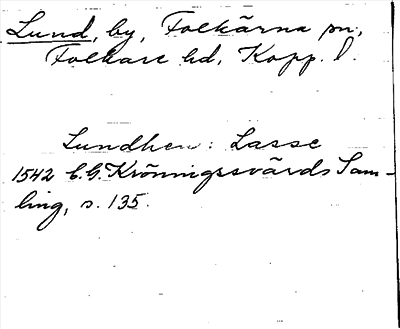 Lund, by, Folkärna sn,
Folkare hd, Kopp. l.
Lundhen: Lasse
1542 C.G. Krönnigssvärds Sam-
ling, s. 135.